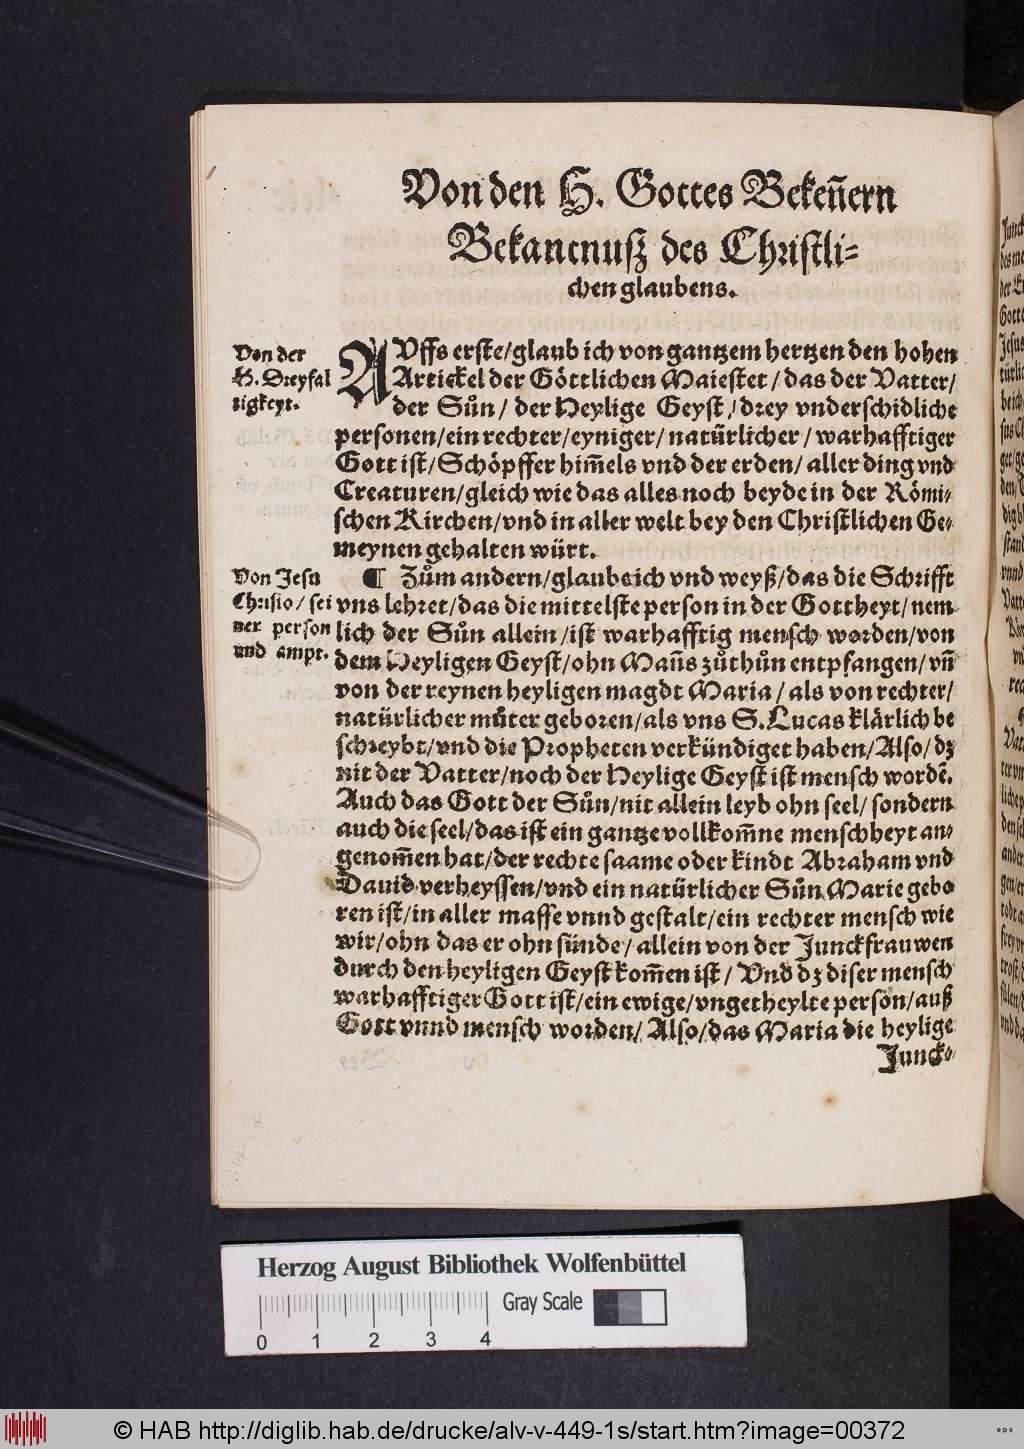 Von den H. Gottes Bekeñern
Bekantnuß des Christli-
chen glaubens.
Von der
H. Dreyfal
tigkeyt.
AVffs erste/glaub ich von gantzem hertzen den hohen
Artickel der Göttlichen Maiestet/das der Vatter/
der Sůn/ der Heylige Geyst/drey vnderschidliche
personen/ein rechter/eyniger/natürlicher/warhafftiger
Gott ist/Schöpffer him̃els vnd der erden/aller ding vnd
Creaturen/gleich wie das alles noch beyde in der Römi-
schen Kirchen/vnd in aller welt bey den Christlichen Ge-
meynen gehalten würt.
Von Jesu
Christo/ sei
ner person
vnd ampt.
¶ Zům andern/glaube ich vnd weyß/das die Schrifft
vns lehret/das die mittelste person in der Gottheyt/nem
lich der Sůn allein/ist warhafftig mensch worden/von
dem Heyligen Geyst/ohn Mañs zůthůn entpfangen/vñ
von der reynen heyligen magdt Maria/als von rechter/
natürlicher můter geboren/als vns S.Lucas klärlich be
schreybt/vnd die Propheten verkündiget haben/Also/dz
nit der Vatter/noch der Heylige Geyst ist mensch wordẽ.
Auch das Gott der Sůn/nit allein leyb ohn seel/sondern
auch die seel/das ist ein gantze vollkom̃ne menschheyt an-
genom̃en hat/der rechte saame oder kindt Abraham vnd
Dauid verheyssen/vnd ein natürlicher Sůn Marie gebo
ren ist/in aller masse vnnd gestalt/ein rechter mensch wie
wir/ohn das er ohn sünde/allein von der Junckfrauwen
durch den heyligen Geyst kom̃en ist/ Vnd dz diser mensch
warhafftiger Gott ist/ein ewige/vngetheylte person/auß
Gott vnnd mensch worden/ Also/das Maria die heylige
Junck-
Herzog August Bibliothek Wolfenbüttel
Gray Scale
0 1 2 3 4
© HAB http://diglib.hab.de/drucke/alv-v-449-1s/start.htm?image=00372